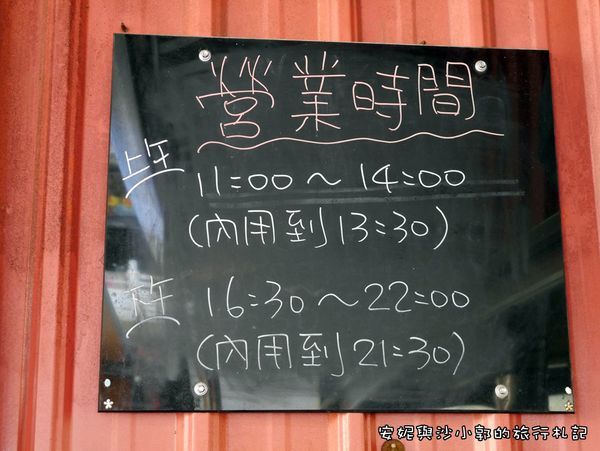 營業時間
上午
11:00～14:00
(內用到13:30)
下午
16:30～22:00
(內用到21:30)
安妮與沙小郭的旅行札記